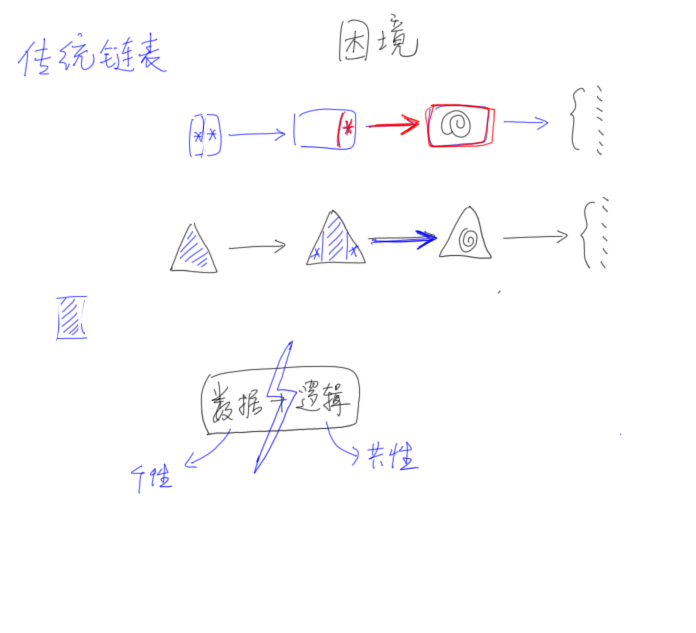 传统链表
困境
* *
*
* *
数据+逻辑
个性
共性